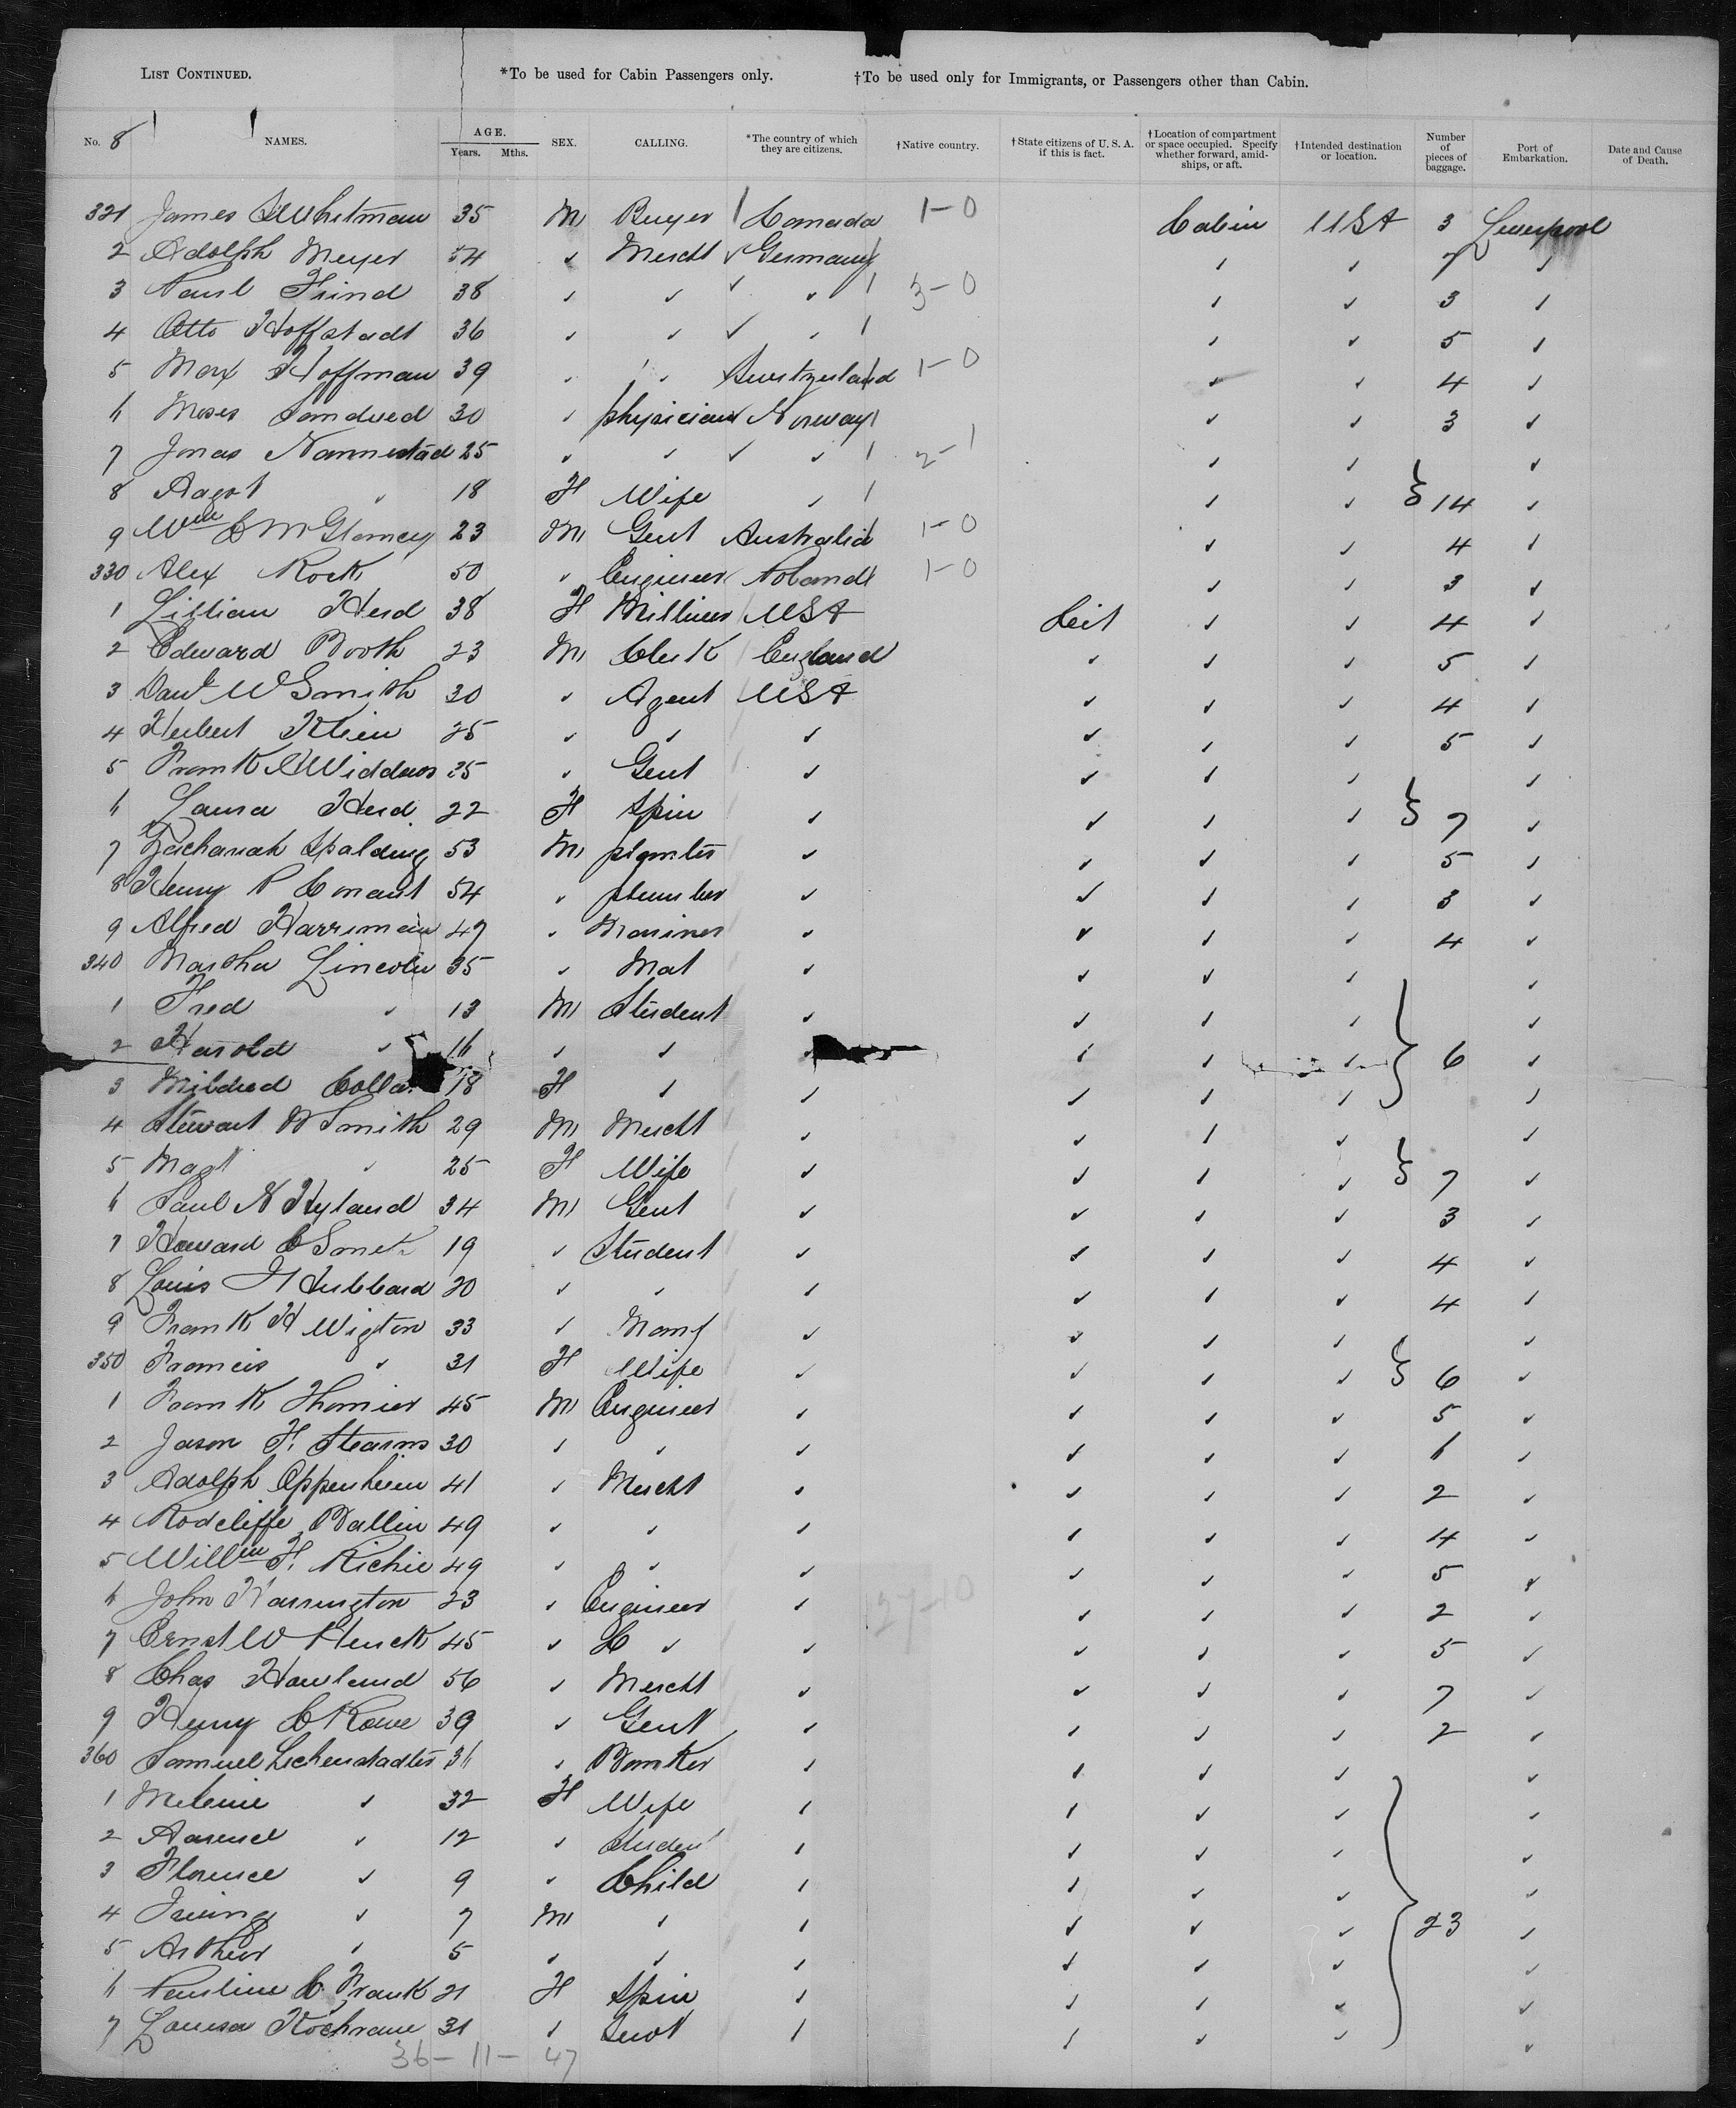 LIST CONTINUED. *To be used for Cabin Passengers only. †To be used only for Immigrants, or Passengers other than Cabin.
No. 8 NAMES. AGE. Years. Mths. SEX. CALLING. *The country of which they are citizens. †Native country. †State citizens of U. S. A. if this is fact. †Location of compartment or space occupied. Specify whether forward, amidships, or aft. †Intended destination or location. Number of pieces of baggage. Port of Embarkation. Date and Cause of Death.
321 James Whitman 35 M Buyer Canada 1-0 Cabin USA 3 Liverpool
2 Adolph Meyer 54 ✓ Mercht ✓ Germany ✓ ✓ 7 ✓
3 Paul Frind 38 ✓ ✓ ✓ ✓ 3-0 ✓ ✓ 3 ✓
4 Otto Hoffstadt 36 ✓ ✓ ✓ ✓ ✓ ✓ 5 ✓
5 Max Hoffman 39 ✓ ✓ Switzerland 1-0 ✓ ✓ 4 ✓
6 Moses 30 ✓ physician Norway ✓ ✓ 3 ✓
7 Jonas Nannestad 25 ✓ ✓ ✓ ✓ 2-1 ✓ ✓ ✓
8 Aagot " 18 F Wife ✓ ✓ ✓ 14 ✓
9 Wm 23 M Gent Australia 1-0 ✓ ✓ 4 ✓
330 Alex Rock 50 ✓ Engineer 1-0 ✓ ✓ 3 ✓
1 Lillian Herd 38 F Milliner USA Cit ✓ ✓ 4 ✓
2 Edward Booth 23 M Clerk England ✓ ✓ ✓ 5 ✓
3 Danl W Smith 30 ✓ Agent USA ✓ ✓ ✓ 4 ✓
4 Herbert Klein 25 ✓ ✓ ✓ ✓ ✓ ✓ 5 ✓
5 Frank A Widdows 35 ✓ Gent ✓ ✓ ✓ ✓ ✓
6 Laura Herd 22 F Spin ✓ ✓ ✓ ✓ 7 ✓
7 Zachariah Spalding 53 M planter ✓ ✓ ✓ ✓ 5 ✓
8 Henry P Conant 54 ✓ plumber ✓ ✓ ✓ ✓ 3 ✓
9 Alfred Harriman 47 ✓ Mariner ✓ ✓ ✓ ✓ 4 ✓
340 Martha Lincoln 35 ✓ Mat ✓ ✓ ✓ ✓ ✓
1 Fred ✓ 13 M Student ✓ ✓ ✓ ✓ ✓
2 Harold ✓ 16 ✓ ✓ ✓ ✓ ✓ 6 ✓
3 Mildred 18 F ✓ ✓ ✓ ✓ ✓ ✓
4 Stewart W Smith 29 M Mercht ✓ ✓ ✓ ✓ ✓
5 Magt ✓ 25 F Wife ✓ ✓ ✓ ✓ 7 ✓
6 Paul N Hyland 34 M Gent ✓ ✓ ✓ ✓ 3 ✓
7 Howard C 19 ✓ Student ✓ ✓ ✓ ✓ 4 ✓
8 Louis Hubbard 20 ✓ ✓ ✓ ✓ ✓ ✓ 4 ✓
9 Frank H Wigton 33 ✓ Manf ✓ ✓ ✓ ✓ ✓
350 Francis ✓ 31 F Wife ✓ ✓ ✓ ✓ 6 ✓
1 Frank 45 M Engineer ✓ ✓ ✓ ✓ 5 ✓
2 Jason F. Stearns 30 ✓ ✓ ✓ ✓ ✓ ✓ 1 ✓
3 Adolph Oppenheim 41 ✓ Mercht ✓ ✓ ✓ ✓ 2 ✓
4 Radcliffe Ballin 49 ✓ ✓ ✓ ✓ ✓ ✓ 4 ✓
5 Willm F. Richie 49 ✓ ✓ ✓ ✓ ✓ ✓ 5 ✓
6 John Warrington 23 ✓ Engineer ✓ 27-10 ✓ ✓ ✓ 2 ✓
7 Ernst W 45 ✓ ✓ ✓ ✓ ✓ ✓ 5 ✓
8 Chas Howland 56 ✓ Mercht ✓ ✓ ✓ ✓ 7 ✓
9 Henry C Rowe 39 ✓ Gent ✓ ✓ ✓ ✓ 2 ✓
360 Samuel Lichenstadter 36 ✓ Banker ✓ ✓ ✓ ✓ ✓
1 Melenie ✓ 32 F Wife ✓ ✓ ✓ ✓ ✓
2 ✓ 12 ✓ Student ✓ ✓ ✓ ✓ ✓
3 Florence ✓ 9 ✓ Child ✓ ✓ ✓ ✓ ✓
4 Irving ✓ 7 M ✓ ✓ ✓ ✓ ✓ 23 ✓
5 Arthur ✓ 5 ✓ ✓ ✓ ✓ ✓ ✓ ✓
6 Pauline C Frank 21 F Spin ✓ ✓ ✓ ✓ ✓
7 Louisa Kochrane 31 ✓ ✓ ✓ ✓ ✓ ✓
36-11-47